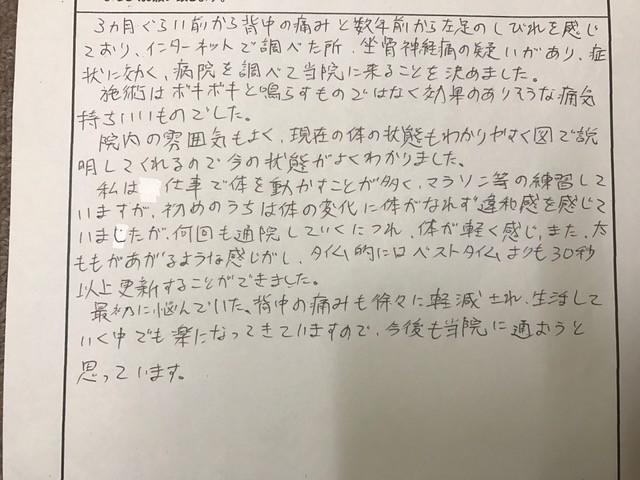 3ヵ月ぐらい前から背中の痛みと数年前から左足のしびれを感じ
ており、インターネットで調べた所、坐骨神経痛の疑いがあり、症
状に効く、病院を調べて当院に来ることを決めました。
施術はボキボキと鳴らすものではなく効果のありそうな痛気
持ちいいものでした。
院内の雰囲気もよく、現在の体の状態もわかりやすく図で説
明してくれるので今の状態がよくわかりました。
私は 仕事で体を動かすことが多く、マラソン等の練習して
いますが、初めのうちは体の変化に体がなれず違和感を感じて
いましたが、何回も通院していくにつれ、体が軽く感じ、また、太
ももがあがるような感じがし、タイム的にはベストタイムよりも30秒
以上更新することができました。
最初に悩んでいた。背中の痛みも徐々に軽減され、生活して
いく中でも楽になってきていますので、今後も当院に通おうと
思っています。